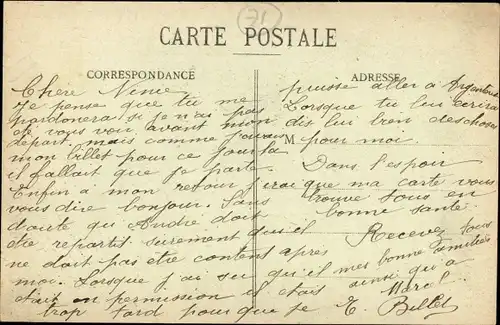 71
CARTE POSTALE
CORRESPONDANCE
Chère Ninie
Je pense que tu me
pardonera si je n'ai pas
de vous voir avant mon
départ mais comme j'avais
mon billet pour ce jour là
il fallait que je parte.
Enfin a mon retour j'irai
vous dire bonjour. Sans
doute qu André doit
être repartit surement qu'il
ne doit pas etre content après
moi. Lorsque j'ai su qu'il
était en permission il était
trop tard pour que je
ADRESSE
puisse aller a
Lorsque tu lui écrira
dis lui bien des choses
M pour moi.
Dans l'espoir
que ma carte vous
trouve tous en
bonne santé
Recevez tous
mes bonne amitiées
ainsi qu a
E. Billet